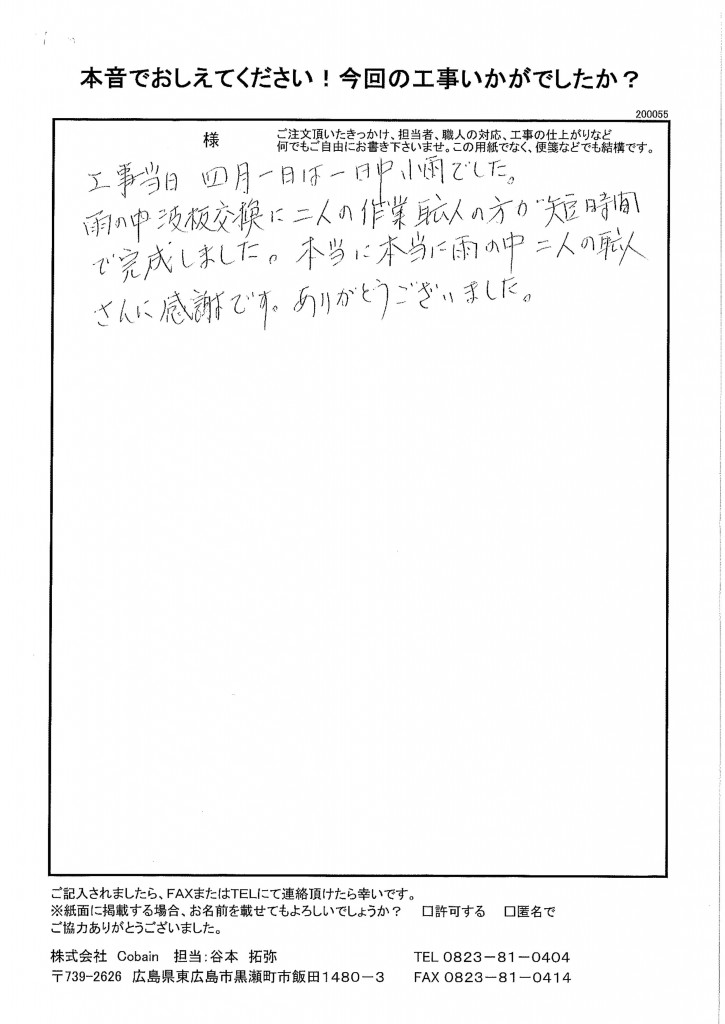 本音でおしえてください！今回の工事いかがでしたか？
200055
様
ご注文頂いたきっかけ、担当者、職人の対応、工事の仕上がりなど
何でもご自由にお書き下さいませ。この用紙でなく、便箋などでも結構です。
工事当日 四月一日は一日中小雨でした。
雨の中波板交換に二人の作業職人の方が短時間
で完成しました。本当に本当に雨の中二人の職人
さんに感謝です。ありがとうございました。
ご記入されましたら、FAXまたはTELにて連絡頂けたら幸いです。
※紙面に掲載する場合、お名前を載せてもよろしいでしょうか？ □許可する □匿名で
ご協力ありがとうございました。
株式会社 Cobain 担当：谷本 拓弥 TEL 0823－81－0404
〒739-2626 広島県東広島市黒瀬町市飯田1480－3 FAX 0823－81－0414